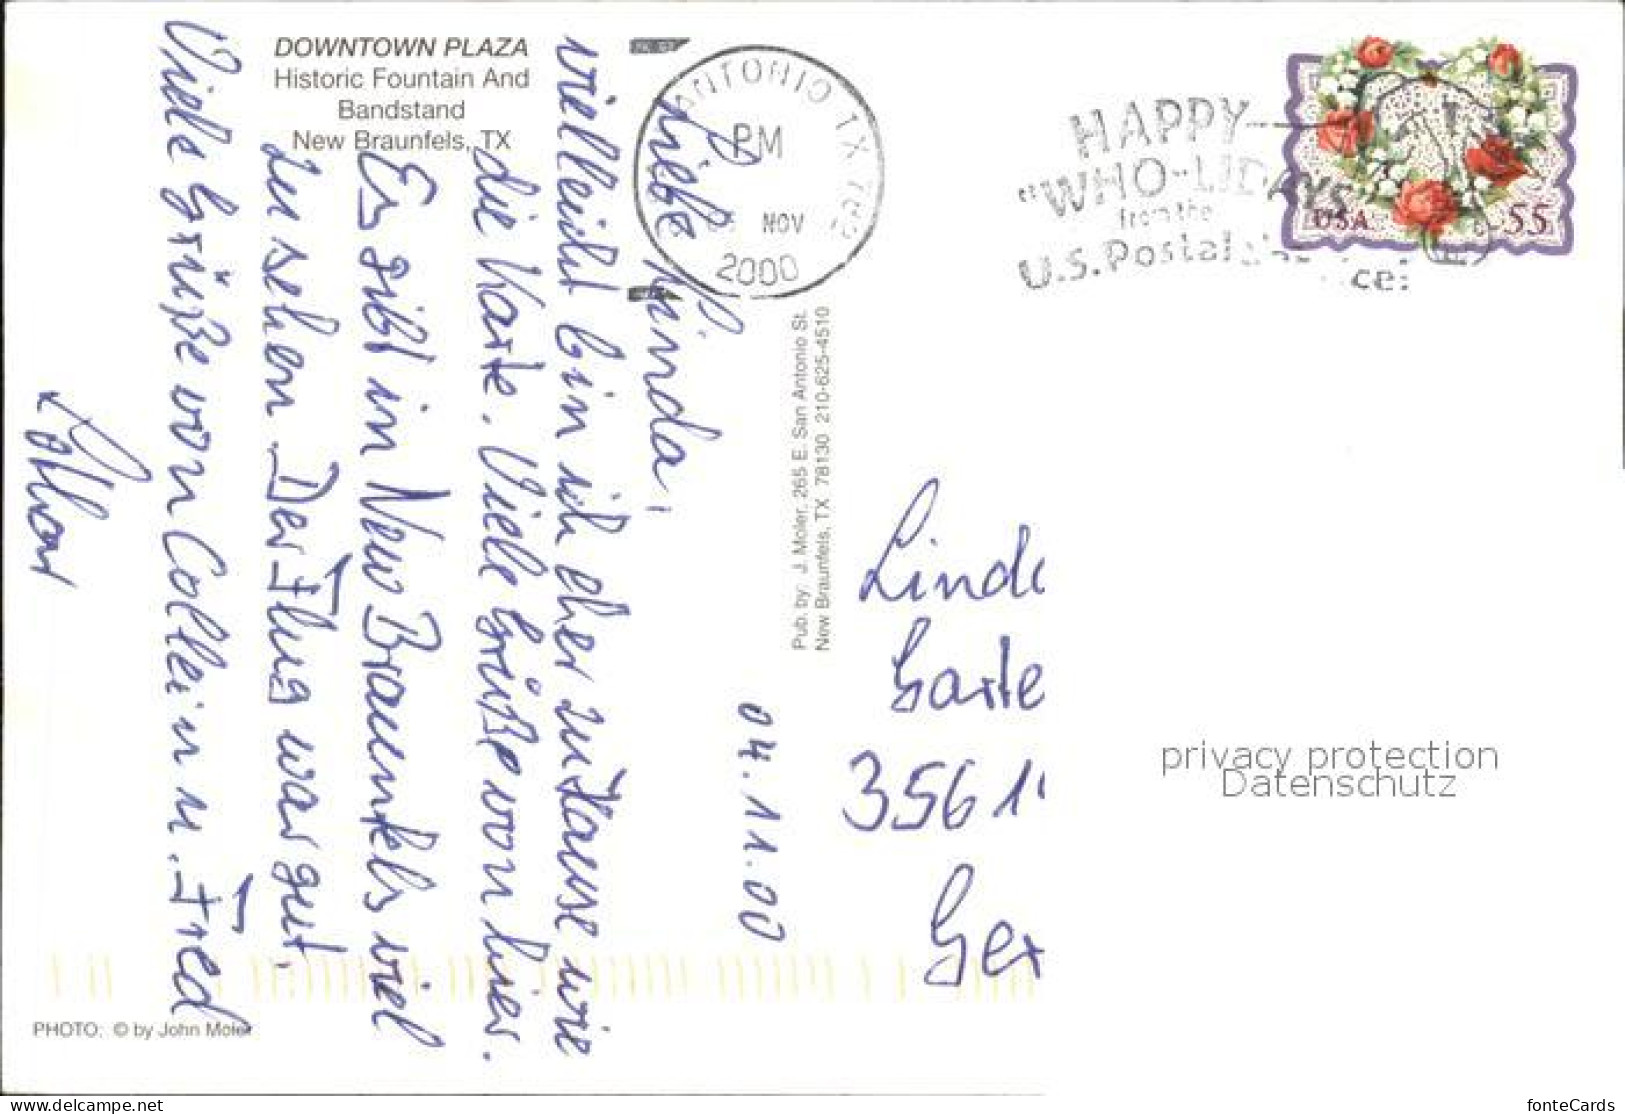 DOWNTOWN PLAZA
Historic Fountain And
Bandstand
New Braunfels, TX
ANTONIO TX
PM
NOV
2000
HAPPY
"WHO-LIDAYS
from the
U.S. Postal
USA 55
04.11.00
Liebe Linda,
vielleicht bin ich eher zu Hause wie
die Karte. Viele Grüße von hier.
Es gibt in New Braunfels viel
zu sehen. Der Flug war gut.
Viele Grüße von Collein u. Fred
Pub. by: J. Moler, 265 E. San Antonio St.
New Braunfels, TX 78130 210-625-4510
Linda
Garte
3561
Ger
privacy protection
Datenschutz
PHOTO: © by John Moler
www.delcampe.net
fonteCards